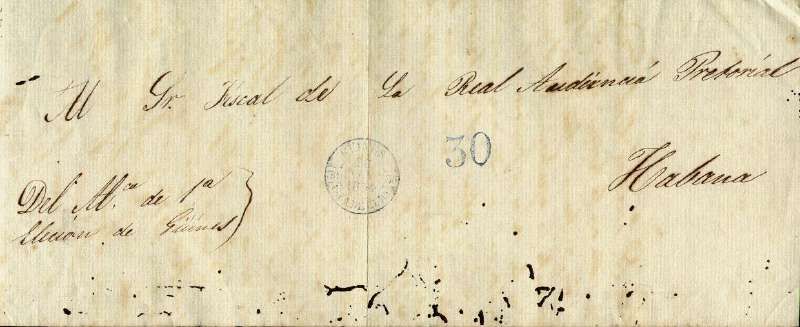 Al Sr. Fiscal de La Real Audiencia Pretorial
30
Habana
Del Al.e de 1a
Elección de Güines